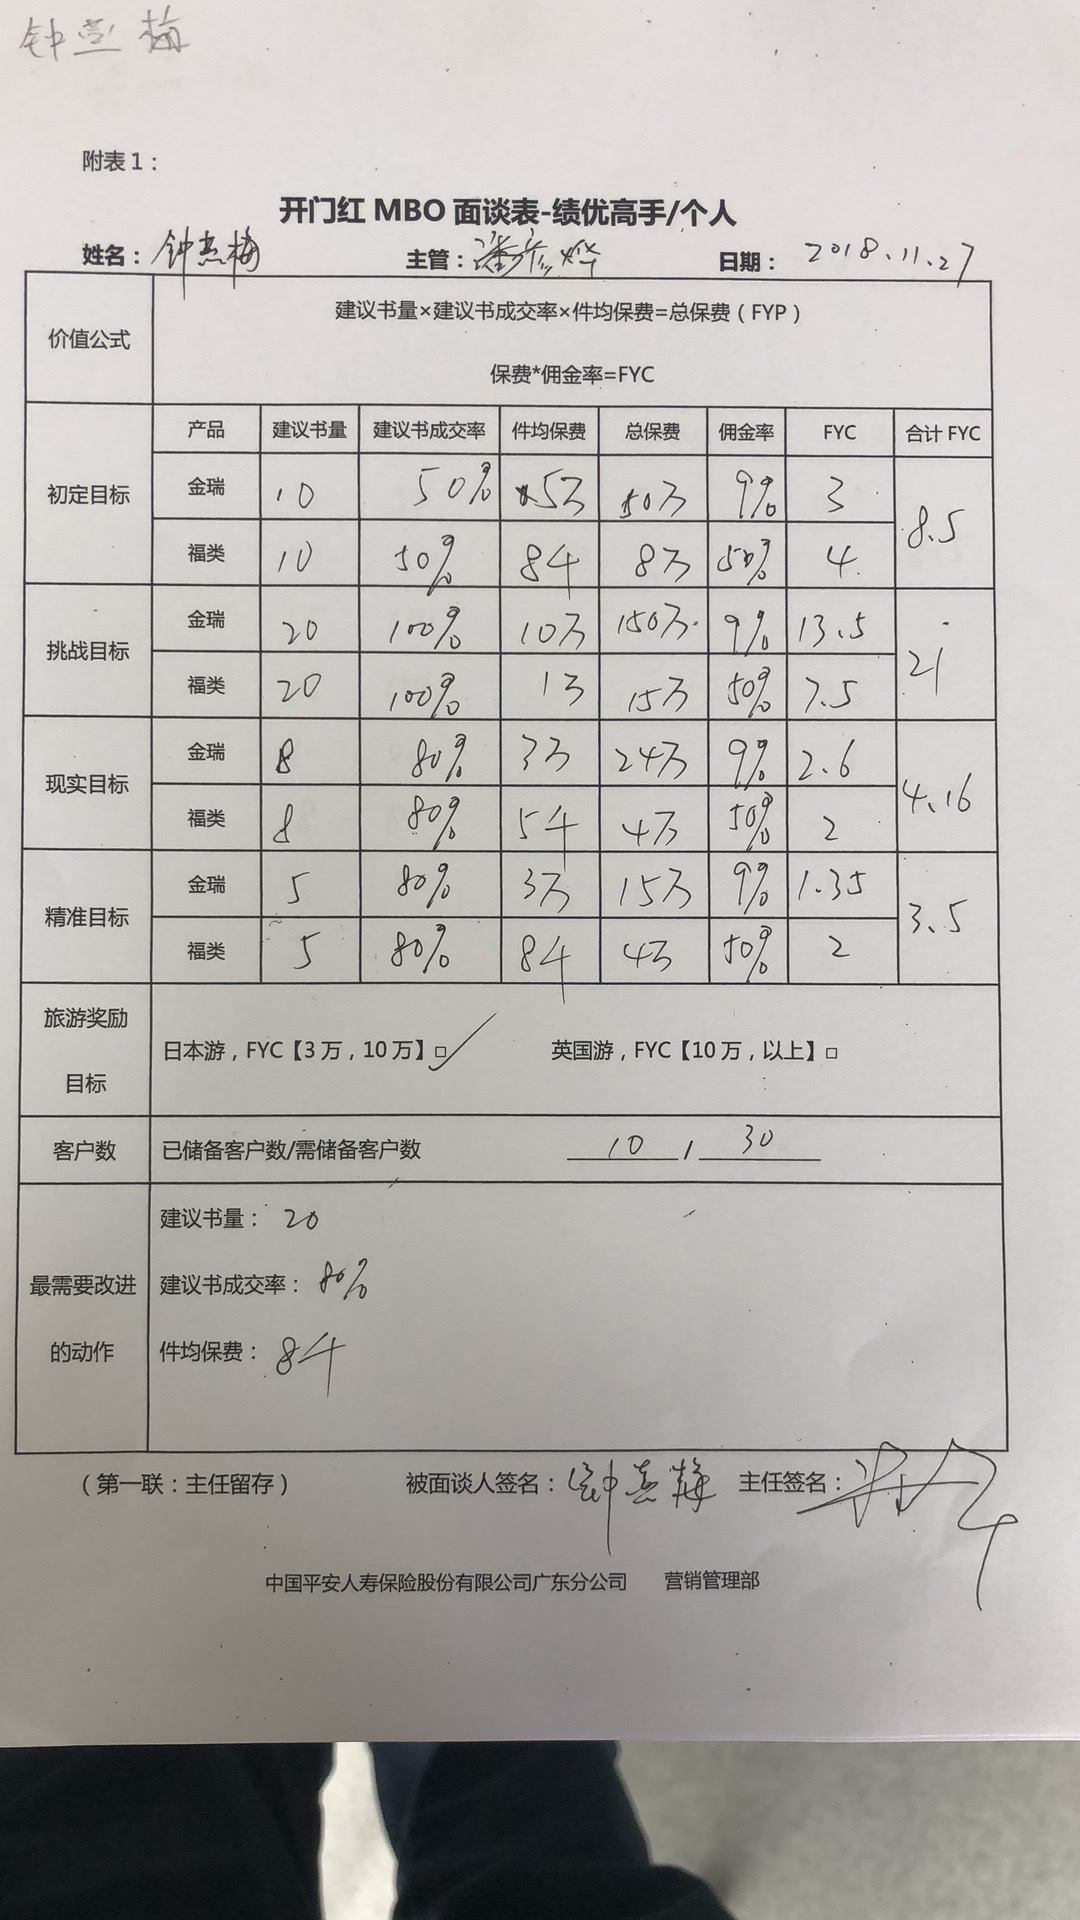 钟燕梅
附表1：
开门红 MBO 面谈表-绩优高手/个人
姓名：钟燕梅 主管：潘彦烨 日期：2018.11.27
价值公式
建议书量×建议书成交率×件均保费=总保费（FYP）
保费*佣金率=FYC
产品 建议书量 建议书成交率 件均保费 总保费 佣金率 FYC 合计 FYC
初定目标
金瑞 10 50% 5万 50万 9% 3
8.5
福类 10 50% 8千 8万 50% 4
挑战目标
金瑞 20 100% 10万 150万 9% 13.5
21
福类 20 100% 1万 15万 50% 7.5
现实目标
金瑞 8 80% 3万 24万 9% 2.6
4.16
福类 8 80% 5千 4万 50% 2
精准目标
金瑞 5 80% 3万 15万 9% 1.35
3.5
福类 5 80% 8千 4万 50% 2
旅游奖励
目标
日本游，FYC【3万，10万】□ 英国游，FYC【10万，以上】□
客户数 已储备客户数/需储备客户数 10 / 30
最需要改进
的动作
建议书量：20
建议书成交率：80%
件均保费：8千
（第一联：主任留存） 被面谈人签名：钟燕梅 主任签名：
中国平安人寿保险股份有限公司广东分公司 营销管理部